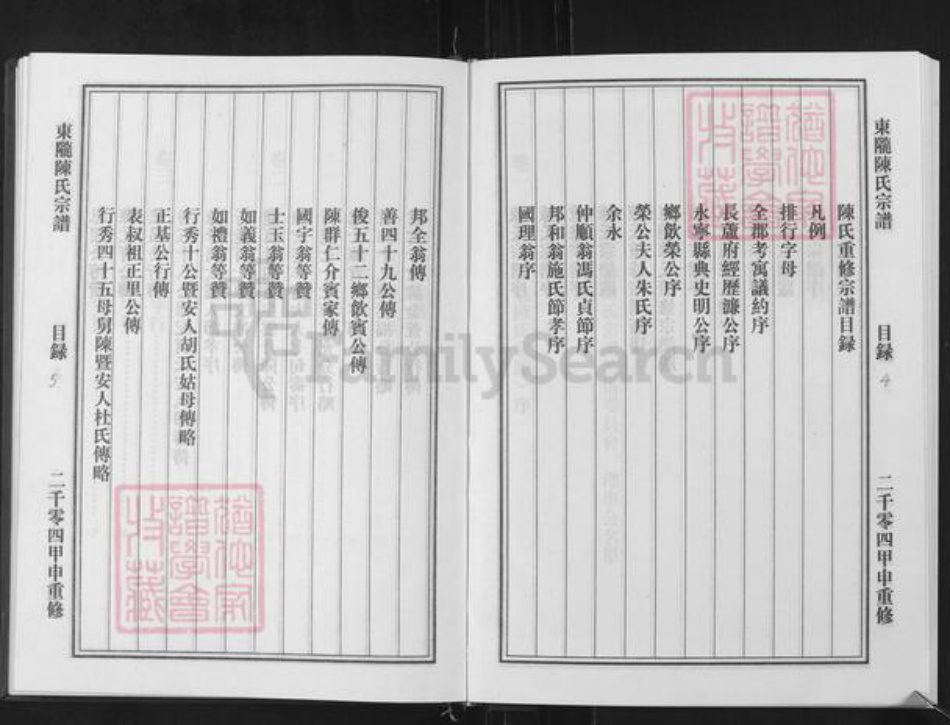 東隴陳氏宗譜
目録
4
二千零四甲申重修
陳氏重修宗譜目録
凡例
排行字母
全郡考寓議約序
長蘆府經歷濂公序
永寧縣典史明公序
鄉飲榮公序
榮公夫人朱氏序
余永
仲順翁馮氏貞節序
邦和翁施氏節孝序
國理翁序
邦全翁傳
善四十九公傳
俊五十二鄉飲賓公傳
陳群仁介賓家傳
國字翁等贊
士玉翁等贊
如義翁等贊
如禮翁等贊
行秀十公暨安人胡氏姑母傳略
正基公行傳
表叔祖正里公傳
行秀四十五母舅陳暨安人杜氏傳略
東隴陳氏宗譜
目録
5
二千零四甲申重修
FamilySearch